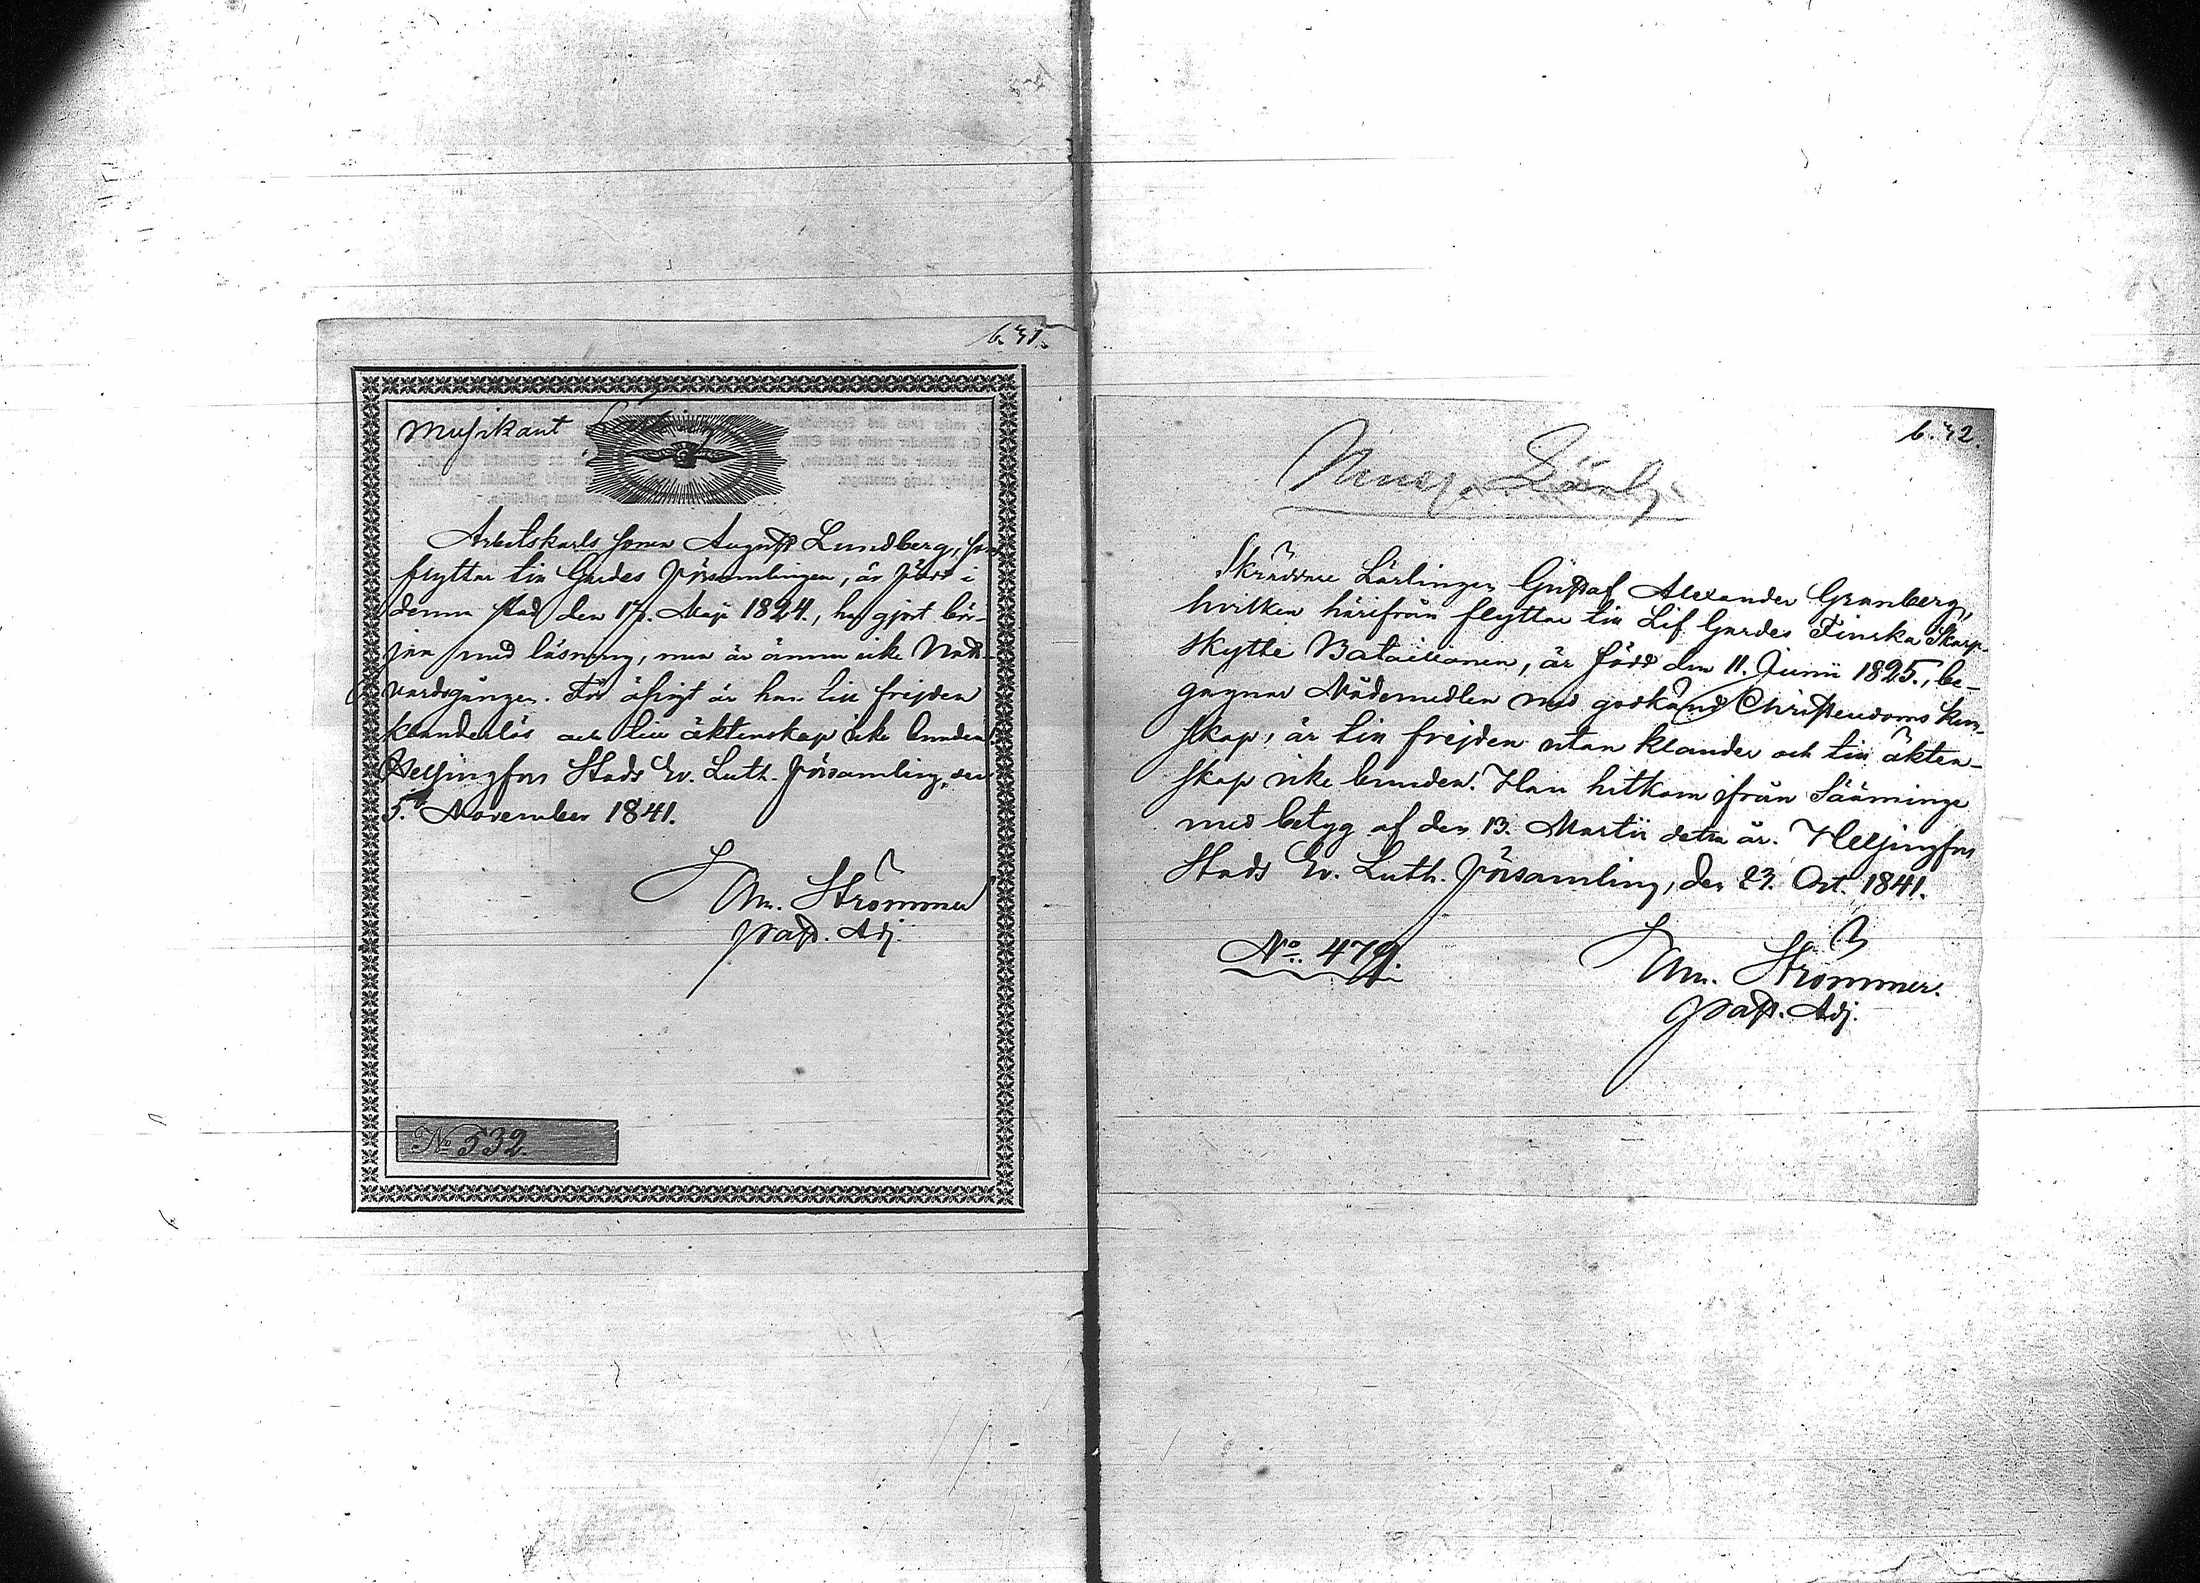 b. 31.
Musikant Lärling
Arbetskarls sonen August Lundberg, som
flyttar till Gardes Församlingen, är född i
denna stad den 17. Maji 1824., har gjort bör-
jan med läsning, men är ännu icke Natt-
vardsgången. För öfrigt är han till frejden
klanderlös och till äktenskap icke bunden.
Helsingfors Stads Ev. Luth. Församling, den
5. November 1841.
Strömmer
Past. Adj.
No 532.
b. 32.
Skräddare Lärlingen Gustaf Alexander Granberg,
hvilken härifrån flyttar till Lif Gardes Finska Skarp-
skytte Bataillonen, är född den 11. Junii 1825., be-
gagnar Nådemedlen med godkänd Christendoms kun-
skap, är till frejden utan klander och till äkten-
skap icke bunden. Han hitkom ifrån Sääminge
med betyg af den 13. Martii detta år. Helsingfors
Stads Ev. Luth. Församling, den 23. Oct. 1841.
No. 479.
Strömmer.
Past. Adj.